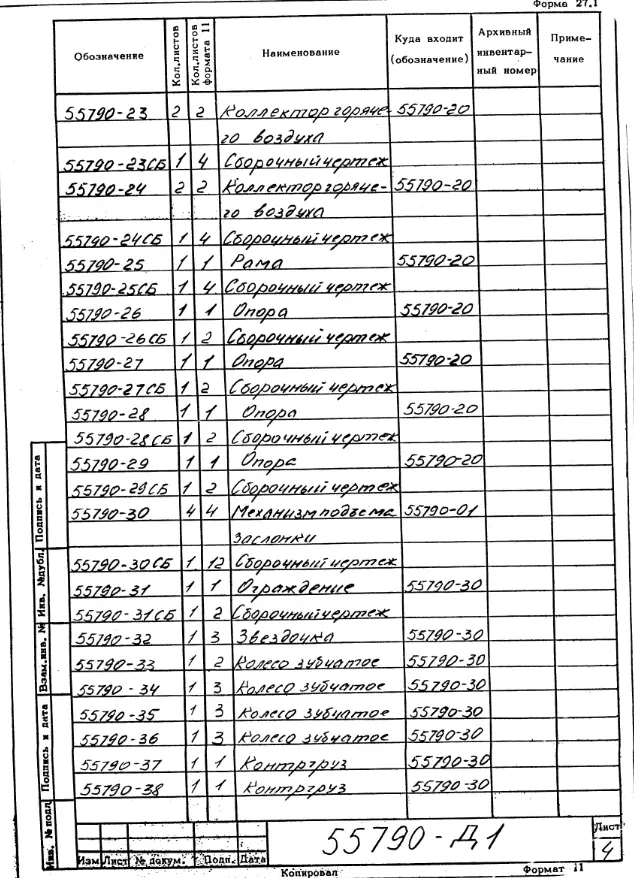 Форма 27.1
Обозначение Кол.листов Кол.листов формата 11 Наименование Куда входит (обозначение) Архивный инвентар-ный номер Приме-чание
55790-23 2 2 Коллектор горяче- 55790-20
го воздуха
55790-23СБ 1 4 Сборочный чертеж
55790-24 2 2 Коллектор горяче- 55790-20
го воздуха
55790-24СБ 1 4 Сборочный чертеж
55790-25 1 1 Рама 55790-20
55790-25СБ 1 4 Сборочный чертеж
55790-26 1 1 Опора 55790-20
55790-26СБ 1 2 Сборочный чертеж
55790-27 1 1 Опора 55790-20
55790-27СБ 1 2 Сборочный чертеж
55790-28 1 1 Опора 55790-20
55790-28СБ 1 2 Сборочный чертеж
55790-29 1 1 Опора 55790-20
55790-29СБ 1 2 Сборочный чертеж
55790-30 4 4 Механизм подъема 55790-01
заслонки
55790-30СБ 1 12 Сборочный чертеж
55790-31 1 1 Ограждение 55790-30
55790-31СБ 1 2 Сборочный чертеж
55790-32 1 3 Звездочка 55790-30
55790-33 1 2 Колесо зубчатое 55790-30
55790-34 1 3 Колесо зубчатое 55790-30
55790-35 1 3 Колесо зубчатое 55790-30
55790-36 1 3 Колесо зубчатое 55790-30
55790-37 1 1 Контргруз 55790-30
55790-38 1 1 Контргруз 55790-30
Подпись и дата
Инв. №дубл.
Взам.инв. №
Подпись и дата
Инв. №подл
55790-Д1
Лист
4
Изм Лист № докум. Подп. Дата
Копировал Формат 11